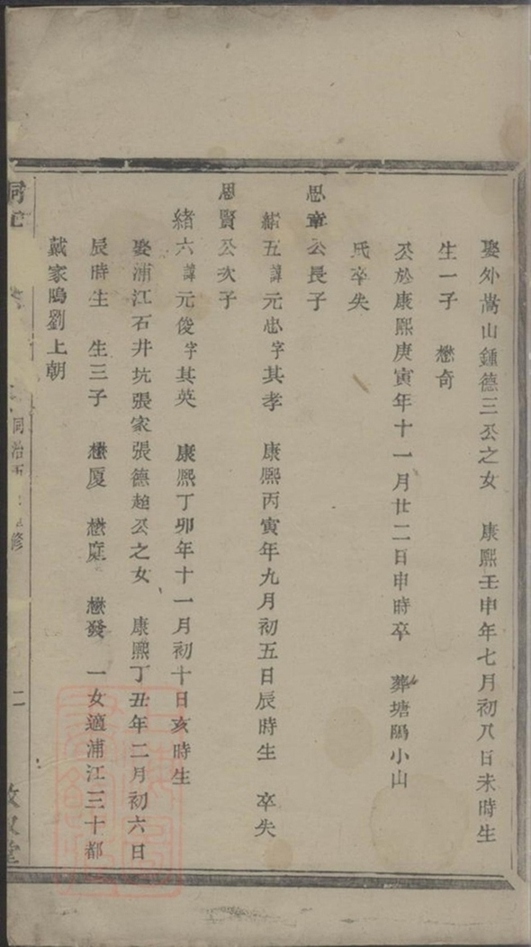 娶外嵩山鍾德三公之女　康熙壬申年七月初八日未時生
生一子　懋奇
公於康熙庚寅年十一月廿二日申時卒　葬塘塢小山
氏卒失
思章公長子
緒五諱元忠字其孝　康熙丙寅年九月初五日辰時生　卒失
思賢公次子
緒六諱元俊字其英　康熙丁卯年十一月初十日亥時生
娶浦江石井坑張家張德趙公之女　康熙丁丑年二月初六日
辰時生　生三子　懋厦　懋庭　懋發　一女適浦江三十都
戴家塢劉上朝
同治　修
二